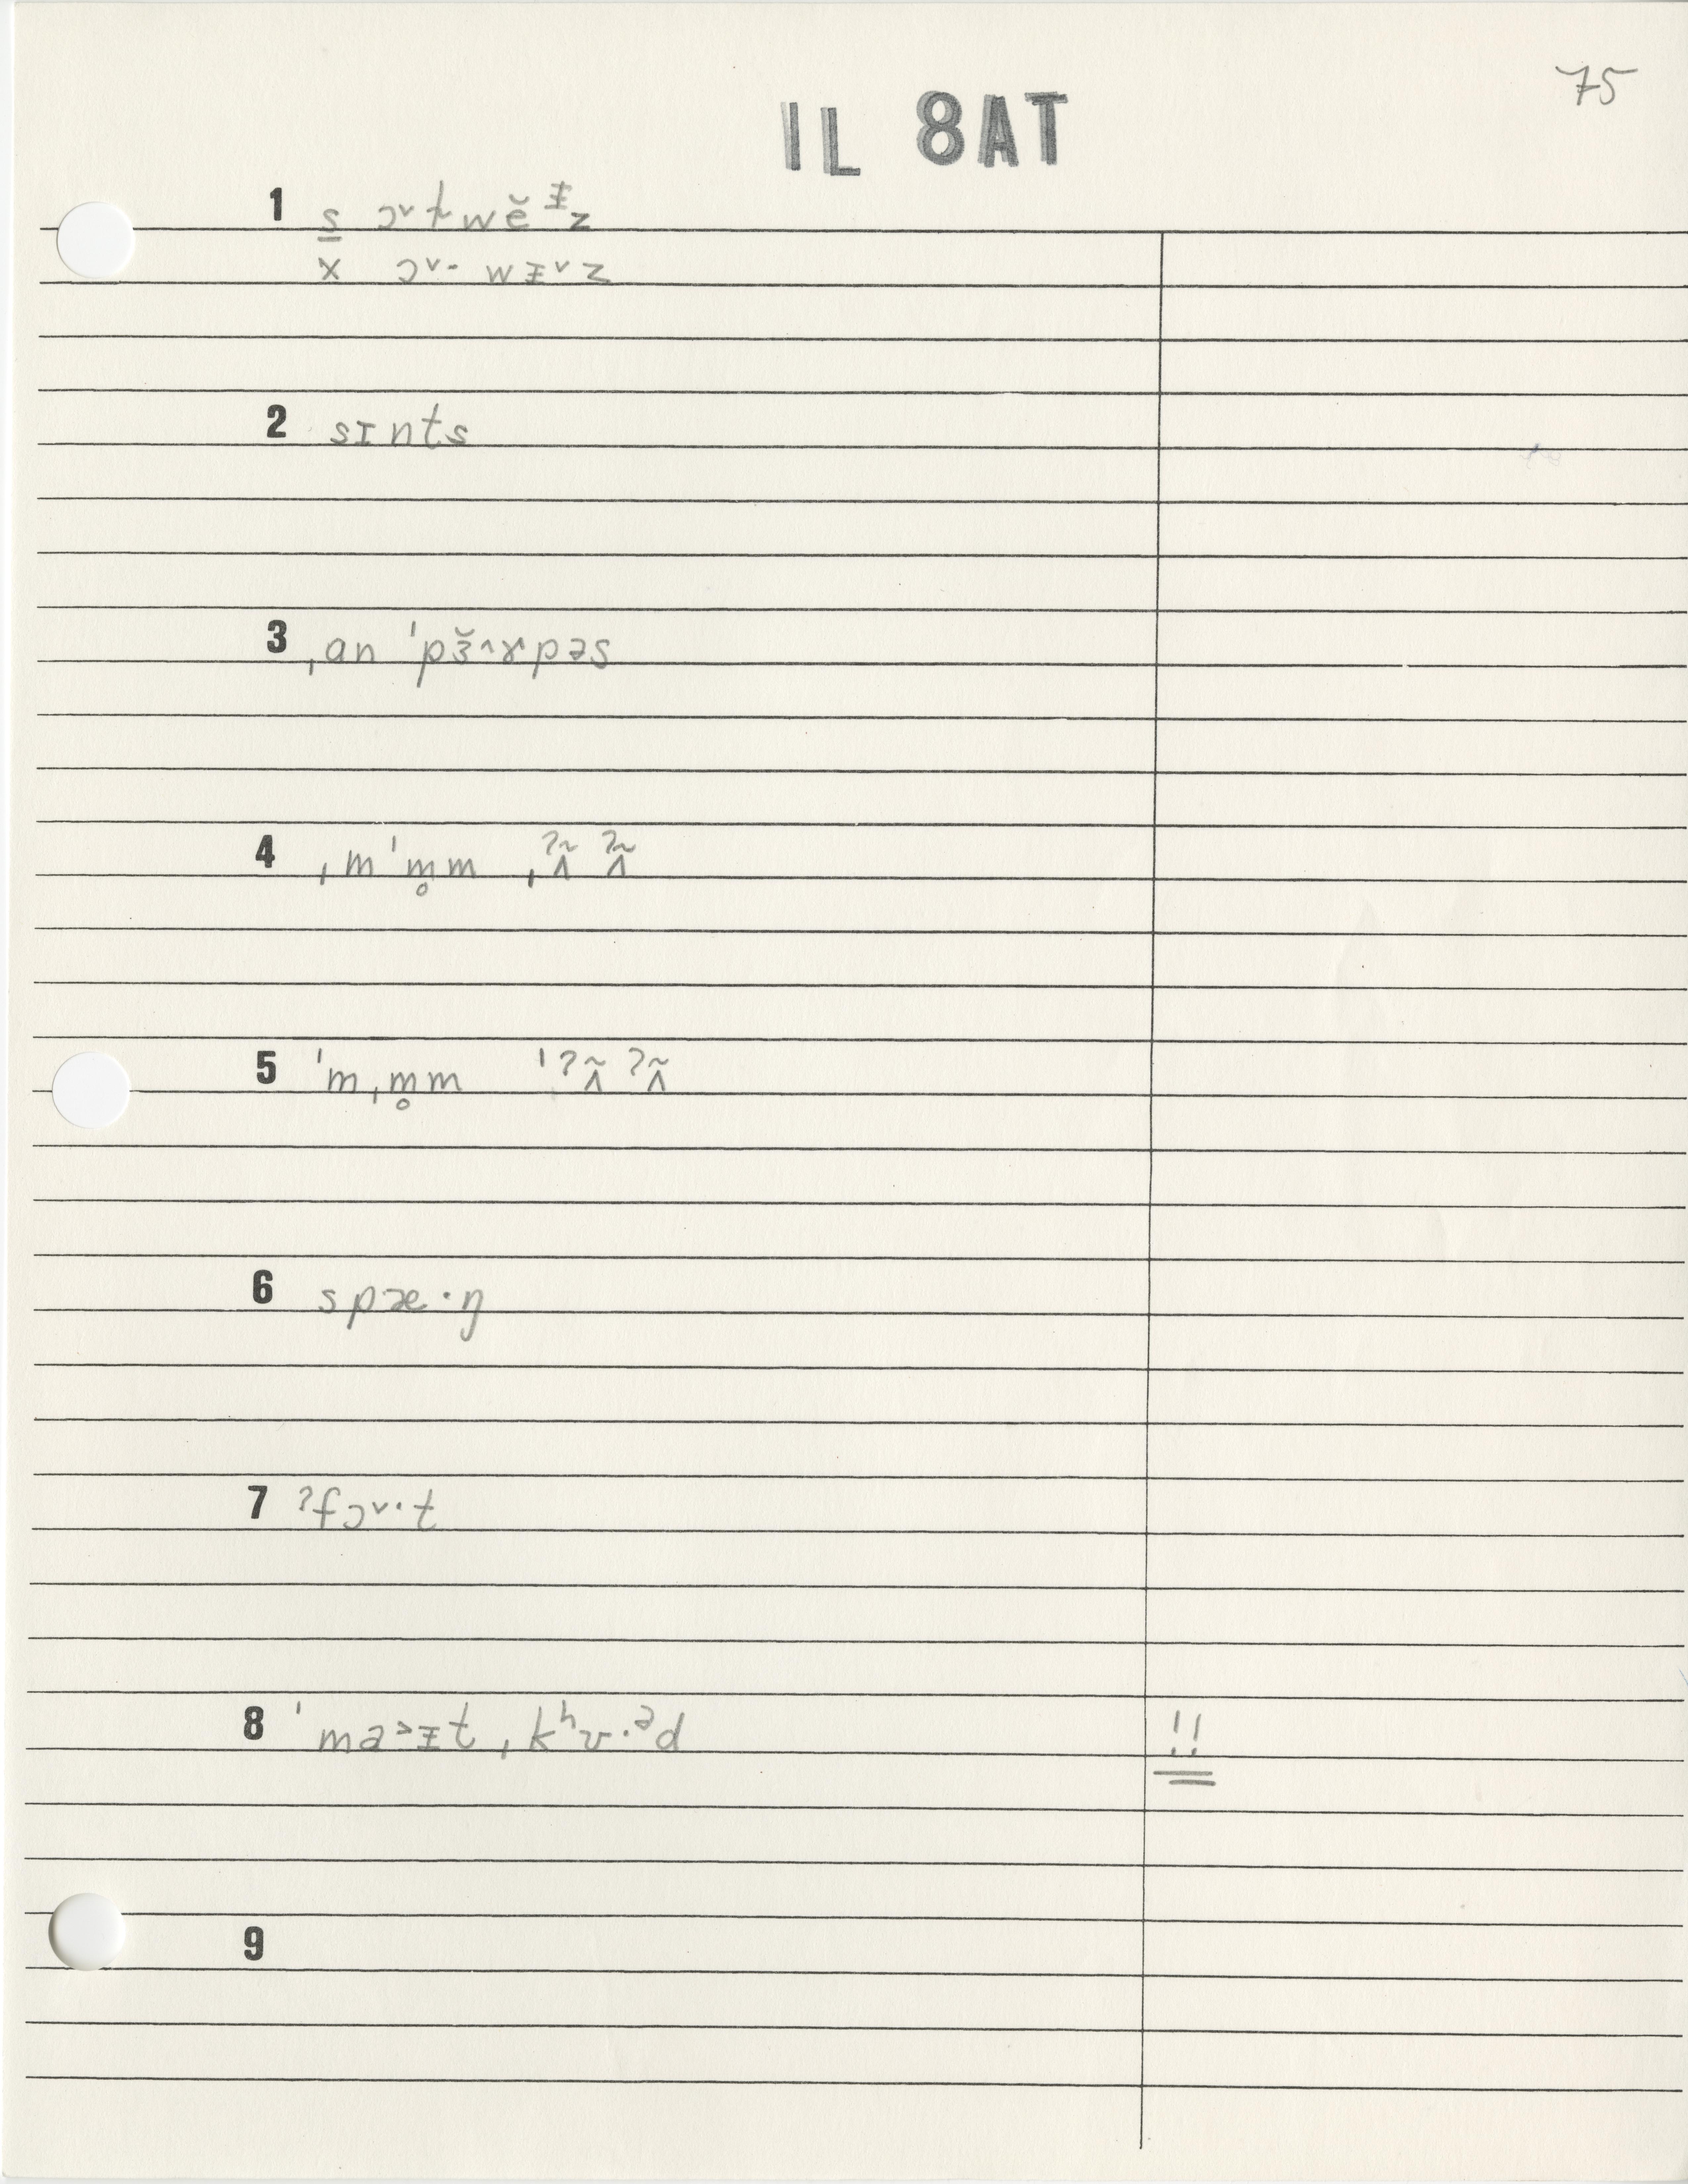 75
IL 8AT
1 s ɔ˅ɫwĕᵻz
x ɔ˅· wᵻ˅z
2 sɪnts
3 ˌan ˈpɜ̆˄ɤpəs
4 ˌmˈm̥m ˌʔʌ̃ ʔʌ̃
5 ˈmˌm̥m ˈʔʌ̃ ʔʌ̃
6 spæ·ŋ
7 ʔfɔ˅·t
8 ˈma˃ᵻtˌkʰʊ·ᵊd !!
9